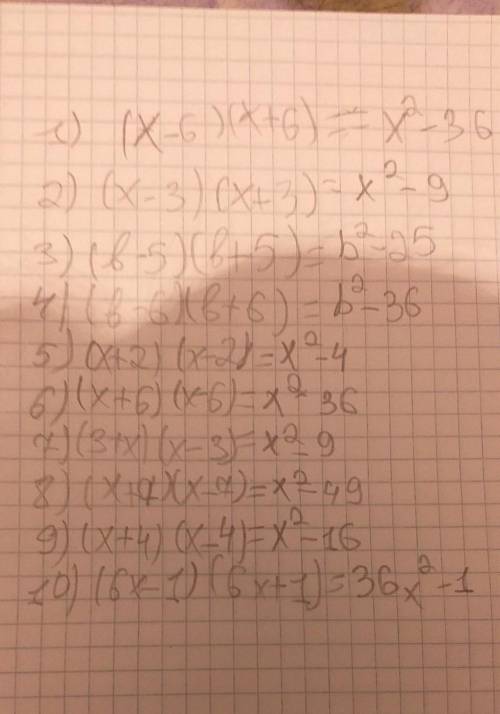 1) (x-6)(x+6) = x²-36
2) (x-3)(x+3) = x²-9
3) (b-5)(b+5) = b²-25
4) (b-6)(b+6) = b²-36
5) (x+2)(x-2) = x²-4
6) (x+6)(x-6) = x²-36
7) (3+x)(x-3) = x²-9
8) (x+7)(x-7) = x²-49
9) (x+4)(x-4) = x²-16
10) (6x-1)(6x+1) = 36x²-1